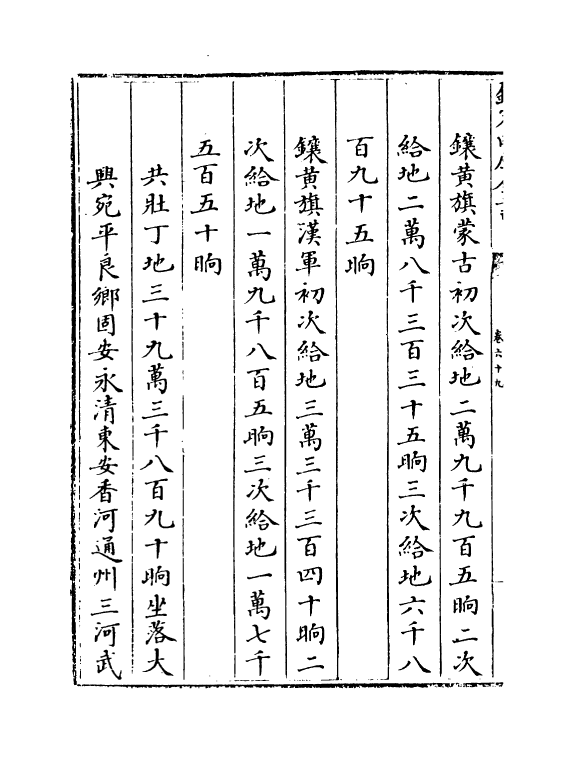 欽定四庫全書
卷六十九
鑲黄旗蒙古初次給地二萬九千九百五晌二次
給地二萬八千三百三十五晌三次給地六千八
百九十五晌
鑲黄旗漢軍初次給地三萬三千三百四十晌二
次給地一萬九千八百五晌三次給地一萬七千
五百五十晌
共壯丁地三十九萬三千八百九十晌坐落大
興宛平良鄉固安永清東安香河通州三河武